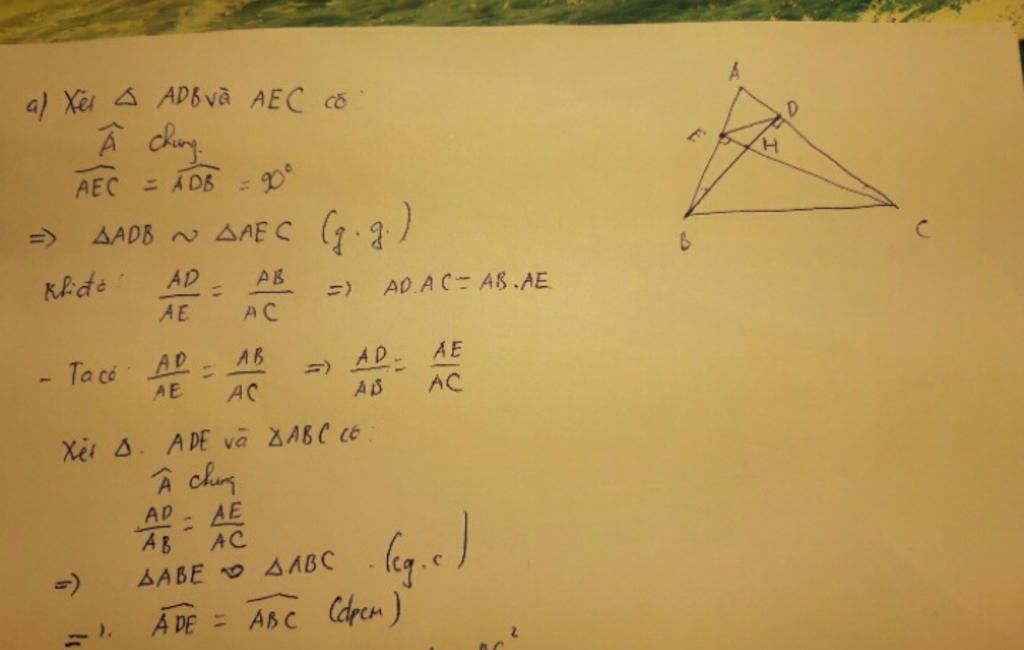 a) Xét △ ADB và AEC có:
Â chung.
∠AEC = ∠ADB = 90°
=> △ADB ~ △AEC (g.g.)
Khi đó: AD/AE = AB/AC => AD.AC = AB.AE
- Ta có: AD/AE = AB/AC => AD/AB = AE/AC
Xét △. ADE và △ABC có:
Â chung
AD/AB = AE/AC
=> △ABE ∽ △ABC .(cg.c)
=> ∠ADE = ∠ABC (đpcm)
A
D
E
H
B
C